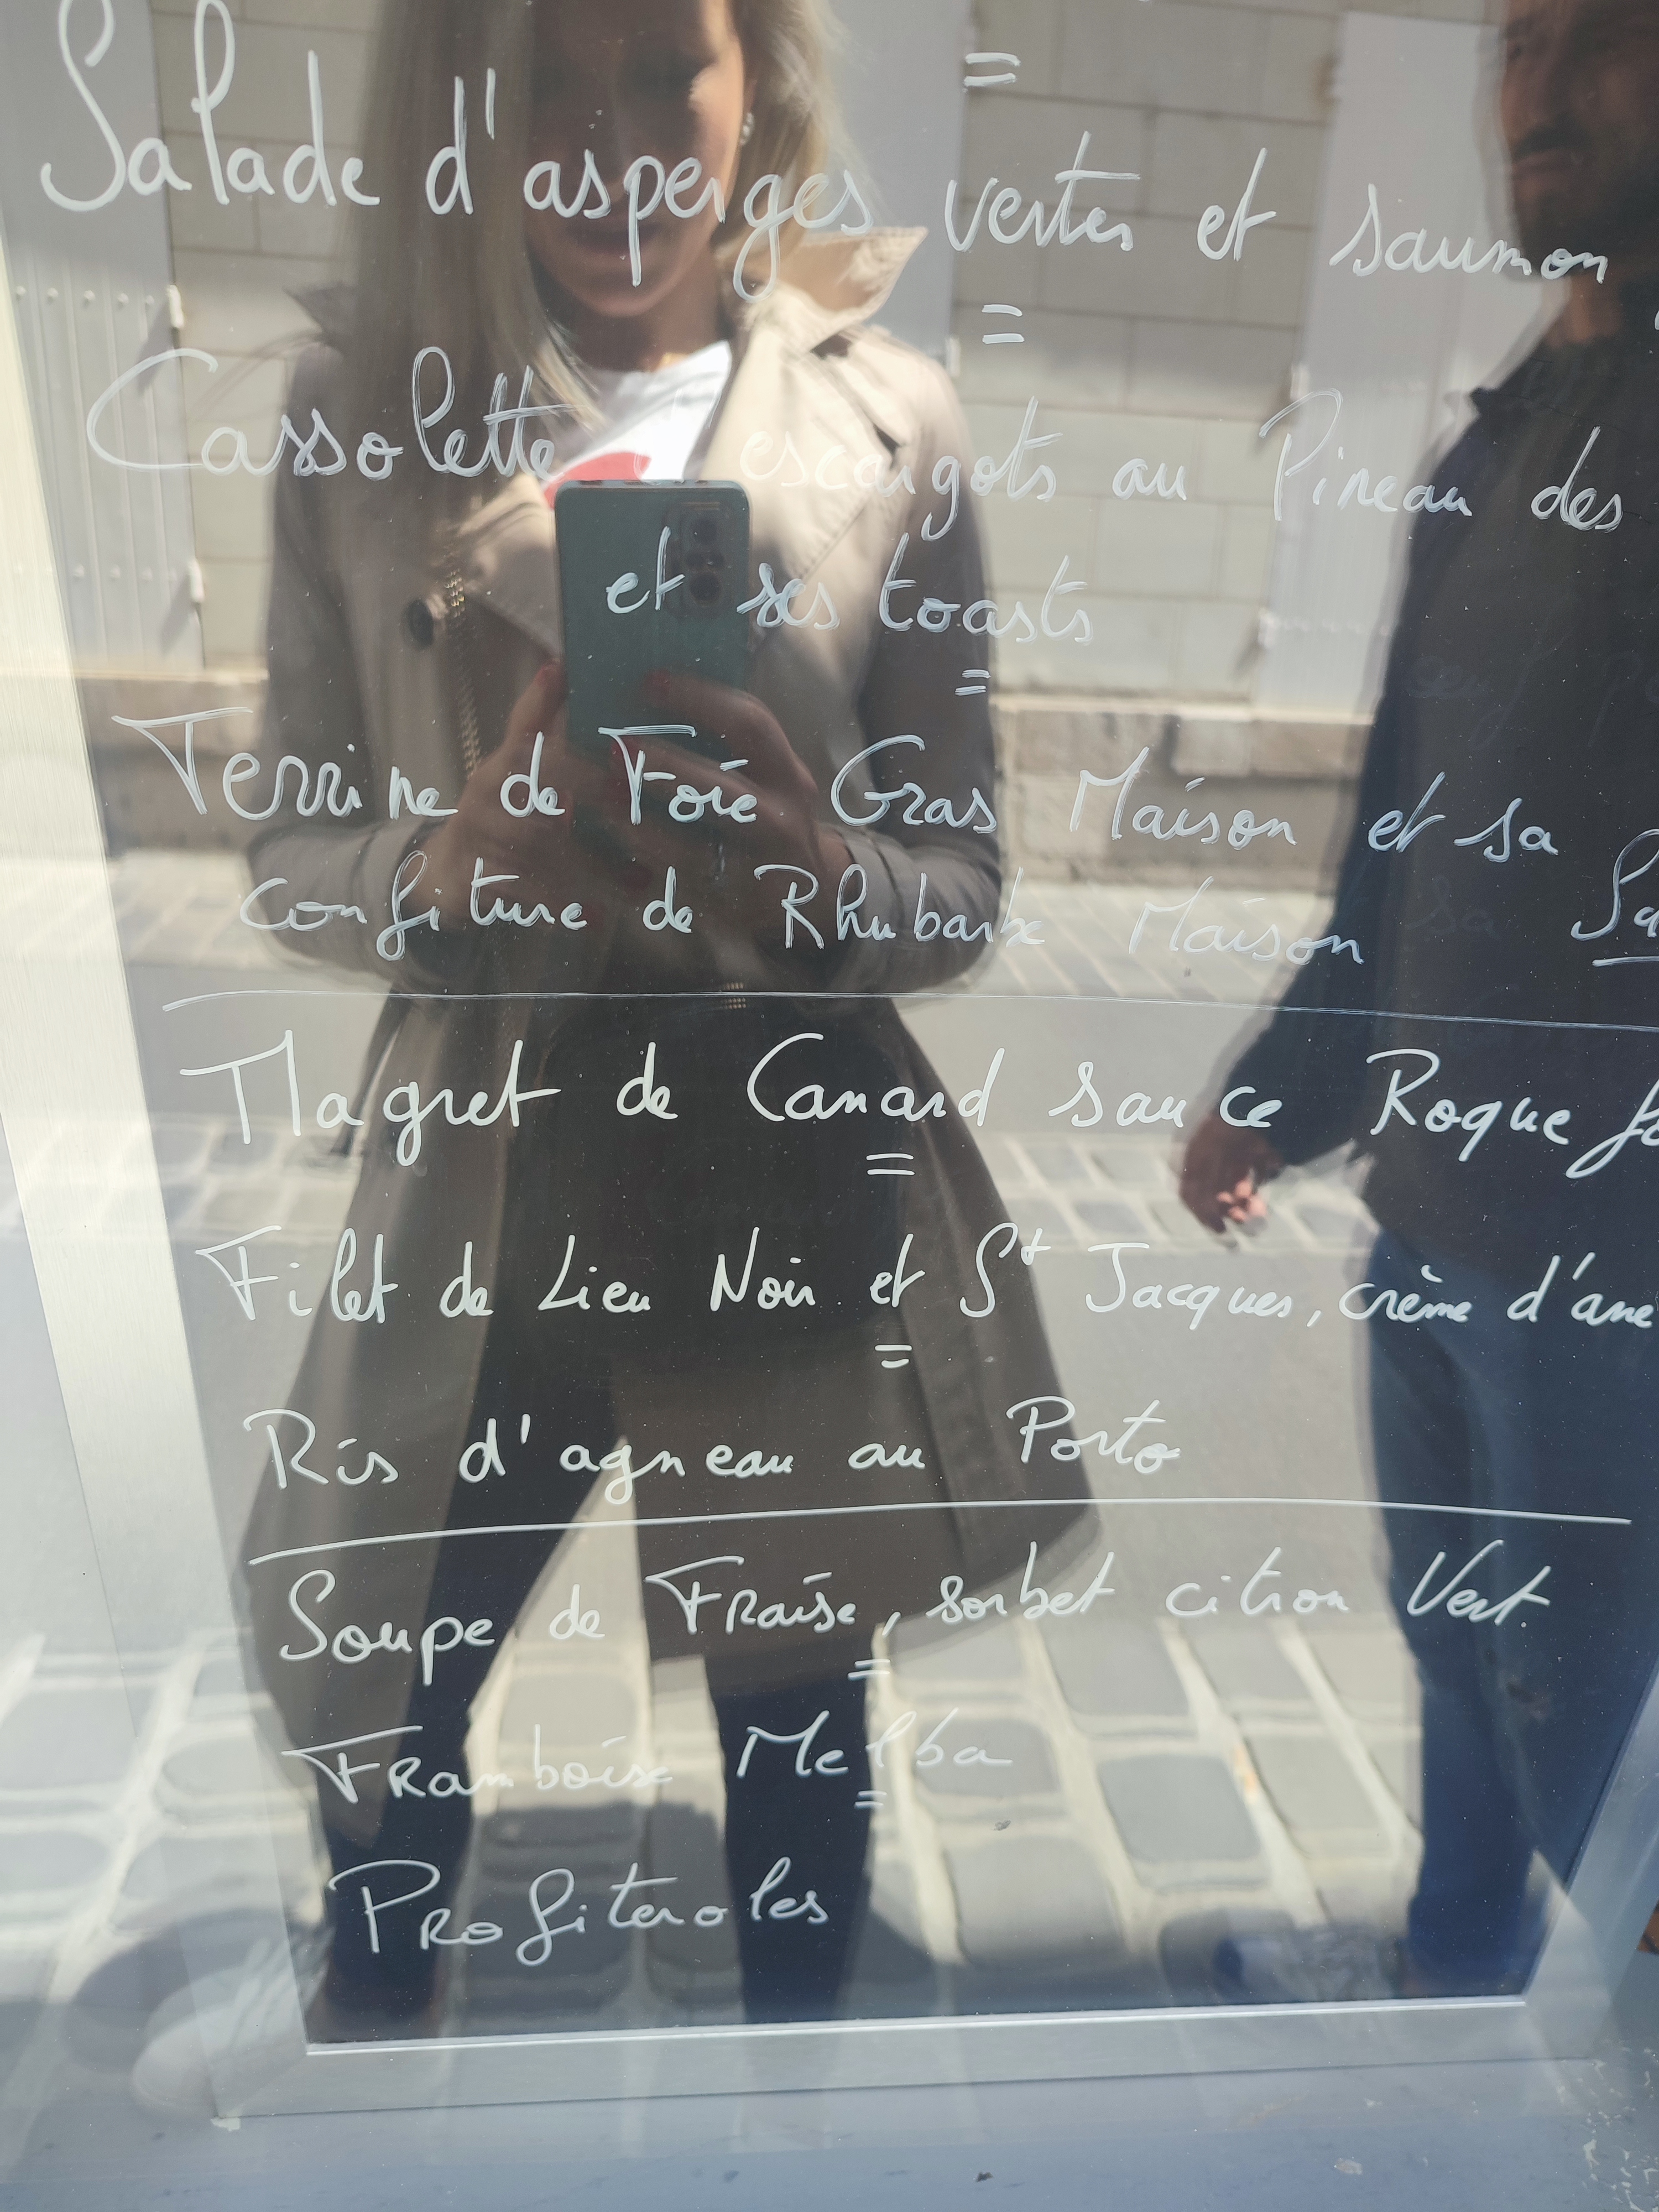 Salade d'asperges vertes et saumon
Cassolette d'escargots au Pineau des
et ses toasts
Terrine de Foie Gras Maison et sa
confiture de Rhubarbe Maison
Magret de Canard sauce
Filet de Lieu Noir et St Jacques, crème
Ris d'agneau au Porto
Soupe de Fraise, sorbet citron Vert.
Framboise Melba
Profiteroles